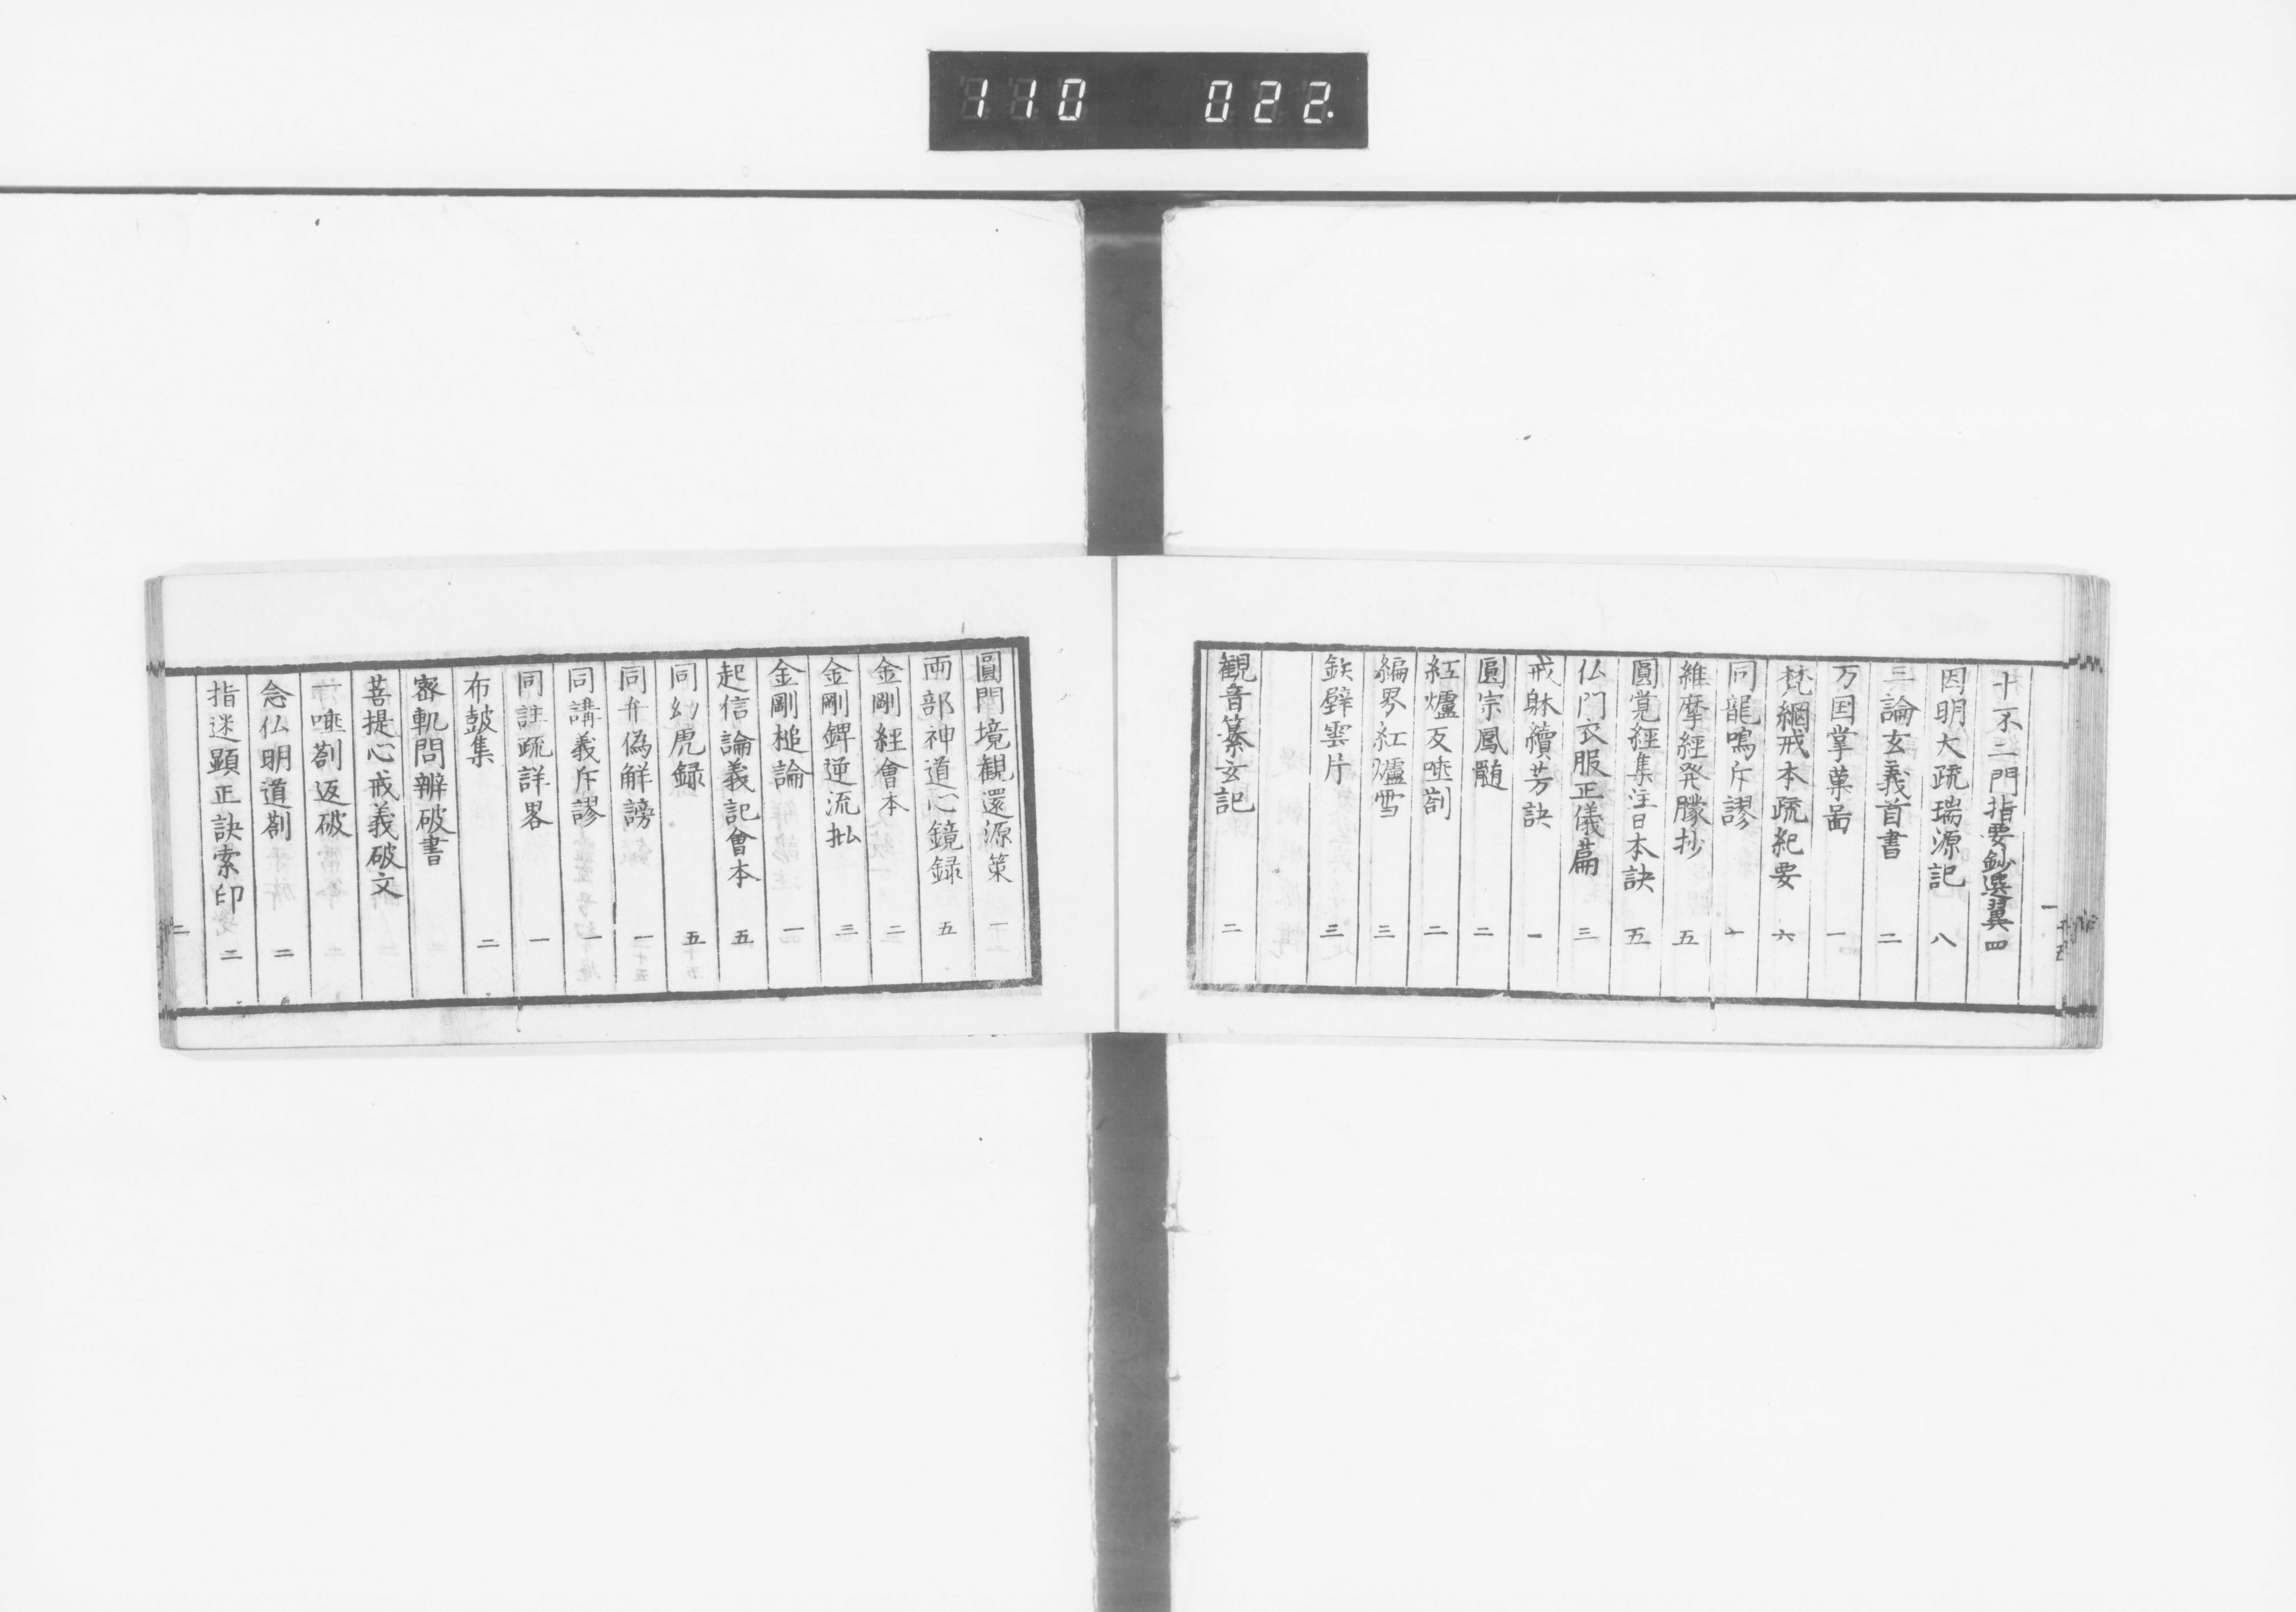 110 022.
十不二門指要鈔選翼 四
因明大疏瑞源記 八
三論玄義首書 二
万国掌菓啚 一
梵網戒本疏紀要 六
同龍鳴斥謬 一
維摩經発矇抄 五
圓覚經集注日本訣 五
仏門衣服正儀萹 三
戒躰續芳訣 一
圓宗鳳髄 二
紅爐反唾劄 二
編界紅爐雪 三
鉄壁雲片 三
観音纂玄記 二
圓門境観還源策 一
両部神道心鏡録 五
金剛經會本 二
金剛錍逆流批 三
金剛槌論 一
起信論義記會本 五
同幻虎録 五
同弁偽解謗 一
同講義斥謬 一
同註疏詳畧 一
布鼓集 二
密軌問辨破書
菩提心戒義破文
唾劄返破
念仏明道劄 二
指迷顕正訣索印 二
二